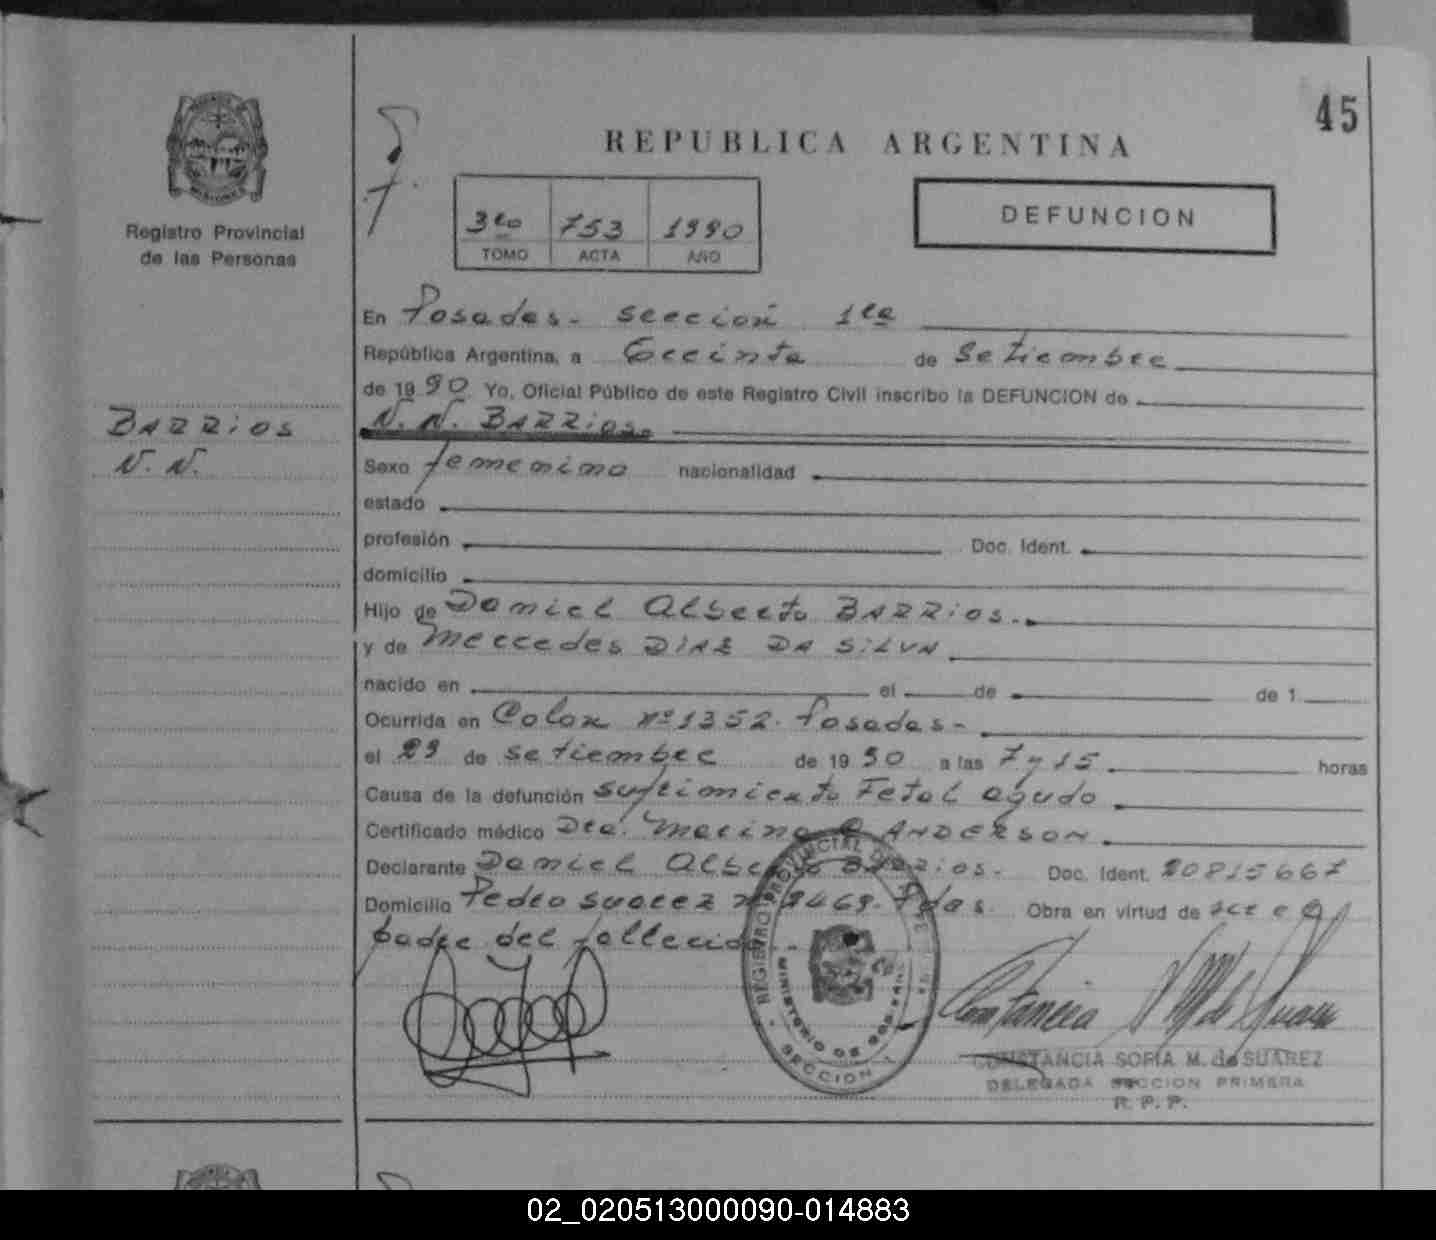 45
REPUBLICA ARGENTINA
Registro Provincial
de las Personas
3ro 753 1990
TOMO ACTA AÑO
DEFUNCION
En Posadas - sección 1ra
República Argentina, a treinta de Setiembre
de 1990 Yo, Oficial Público de este Registro Civil inscribo la DEFUNCION de
BARRios
N. N.
N. N. BARRios.
Sexo femenino nacionalidad
estado
profesión Doc. Ident.
domicilio
Hijo de Daniel Alberto BARRios.
y de Mercedes DIAZ DA SILVA
nacido en el de de 1
Ocurrida en Colon nº 1352. Posadas-
el 29 de setiembre de 1990 a las 7 y 15 horas
Causa de la defunción sufrimiento Fetal agudo
Certificado médico Dra. Marina ANDERSON
Declarante Daniel Alberto BARRios. Doc. Ident. 20815667
Domicilio Pedro Suarez nº Pdas. Obra en virtud de ser el
padre del fallecido.
REGISTRO PROVINCIAL DE
MINISTERIO DE GOBIERNO
SECCION 1
CONSTANCIA SOFIA M. de SUAREZ
DELEGADA SECCION PRIMERA
R. P. P.
02_020513000090-014883